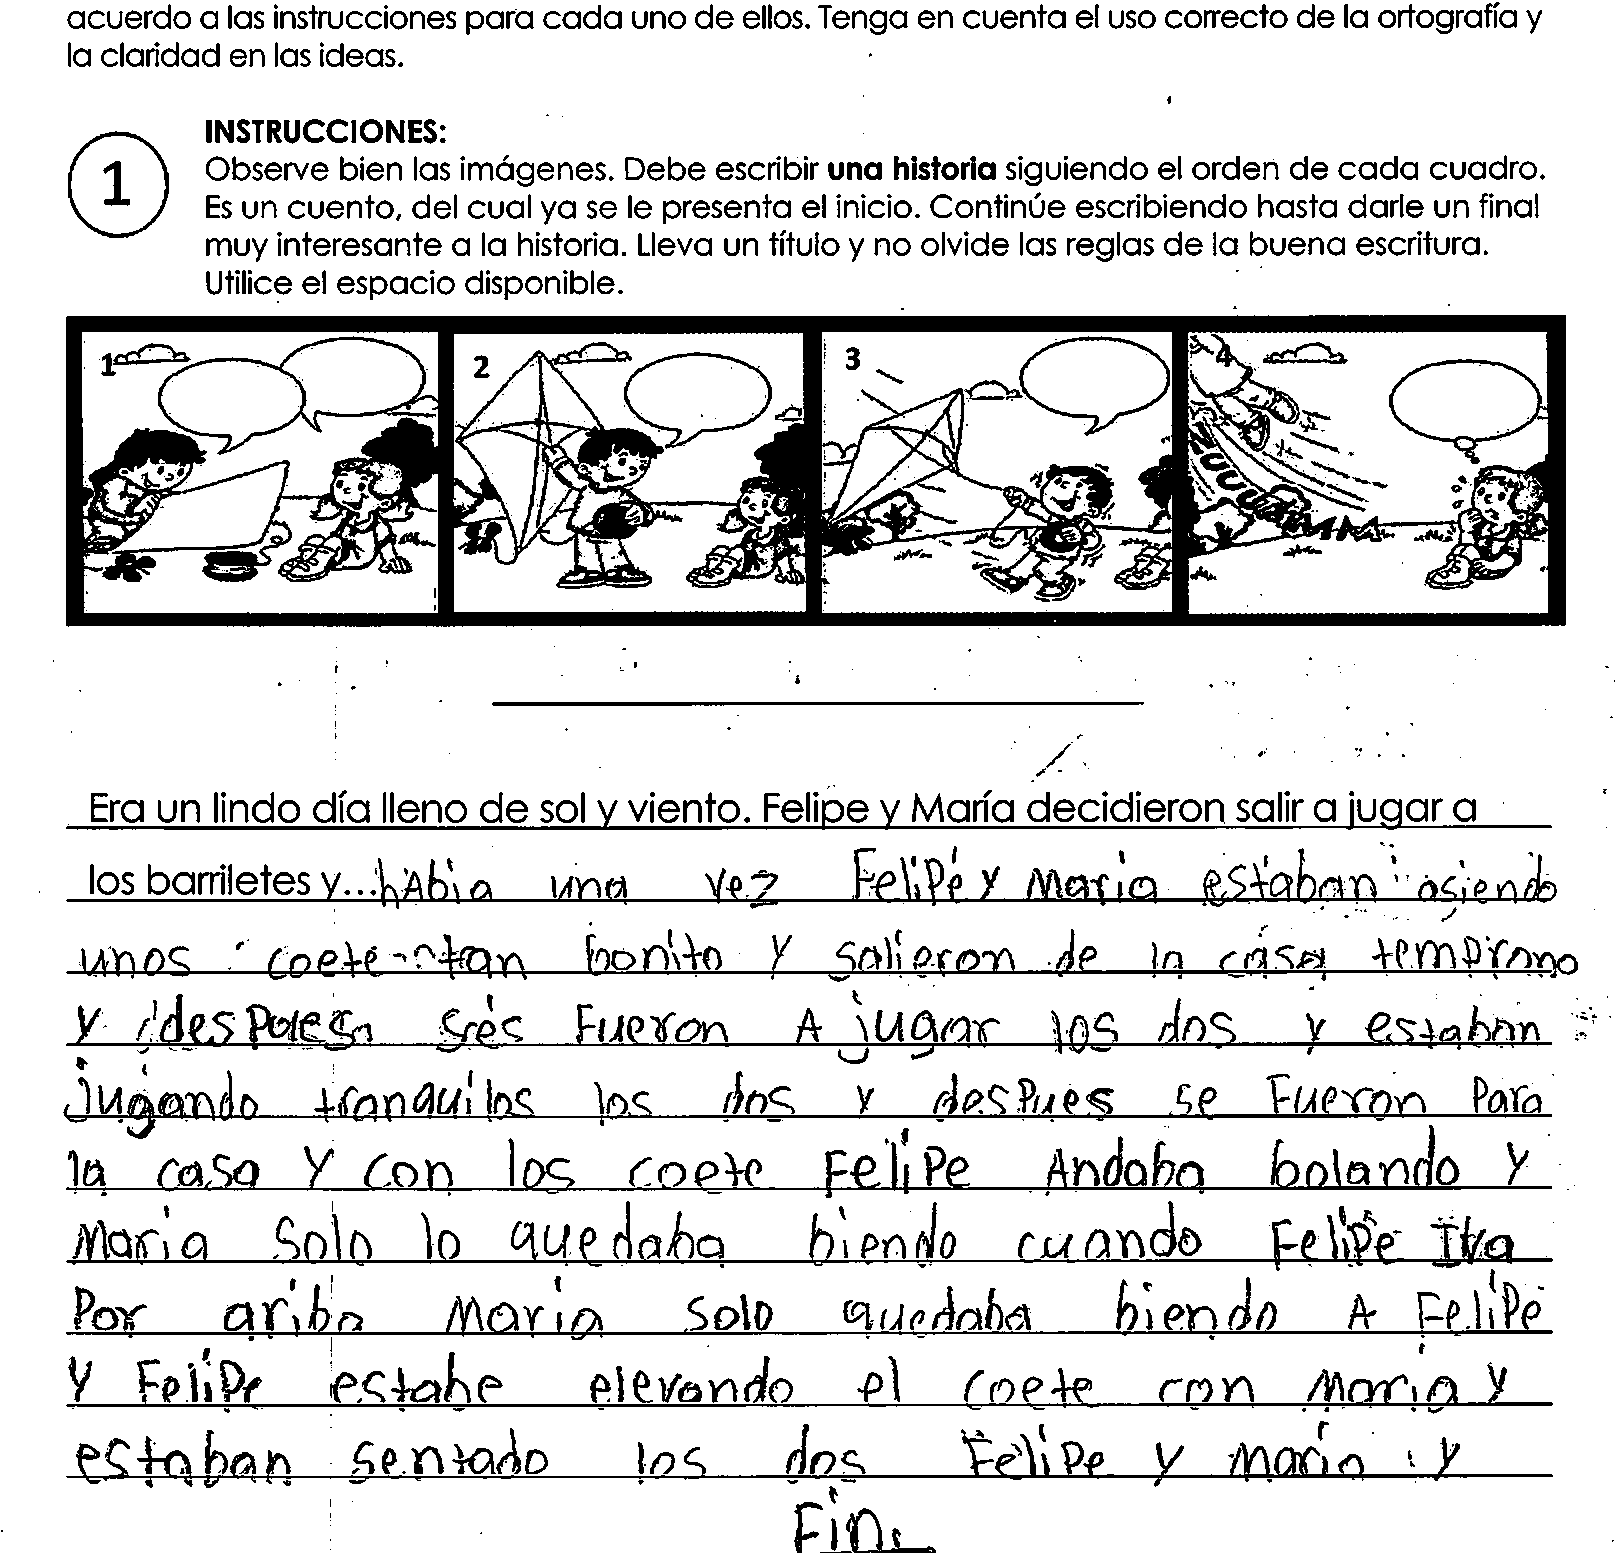 acuerdo a las instrucciones para cada uno de ellos. Tenga en cuenta el uso correcto de la ortografía y
la claridad en las ideas.
INSTRUCCIONES:
1
Observe bien las imágenes. Debe escribir una historia siguiendo el orden de cada cuadro.
Es un cuento, del cual ya se le presenta el inicio. Continúe escribiendo hasta darle un final
muy interesante a la historia. Lleva un título y no olvide las reglas de la buena escritura.
Utilice el espacio disponible.
1 2 3 4
Era un lindo día lleno de sol y viento. Felipe y María decidieron salir a jugar a
los barriletes y... hAbia una vez Felipe y Maria estaban asiendo
unos coete tan bonito y salieron de la casa temprano
y despues ses Fueron A jugar los dos y estaban
jugando tranquilos los dos y despues se Fueron Para
la casa y con los coete Felipe Andaba bolando y
Maria solo lo quedaba biendo cuando Felipe Iva
Por ariba Maria solo quedaba biendo A Felipe
y Felipe estabe elevando el coete con Maria y
estaban sentado los dos Felipe y Maria y
Fin.